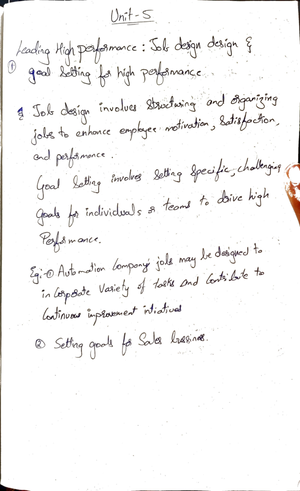 Unit-5
Leading High performance: Job design design &
① goal Setting for high performance.
Job design involves Structuring and organizing
jobs to enhance employee motivation, Satisfaction,
and performance.
Goal Setting involves Setting Specific, challenging
goals for individuals or teams to drive high
Performance.
Eg:-① Automation Company jobs may be designed to
in Corporate Variety of tasks and Contribute to
Continuous improvement intiatives
② Setting goals for Sales business.